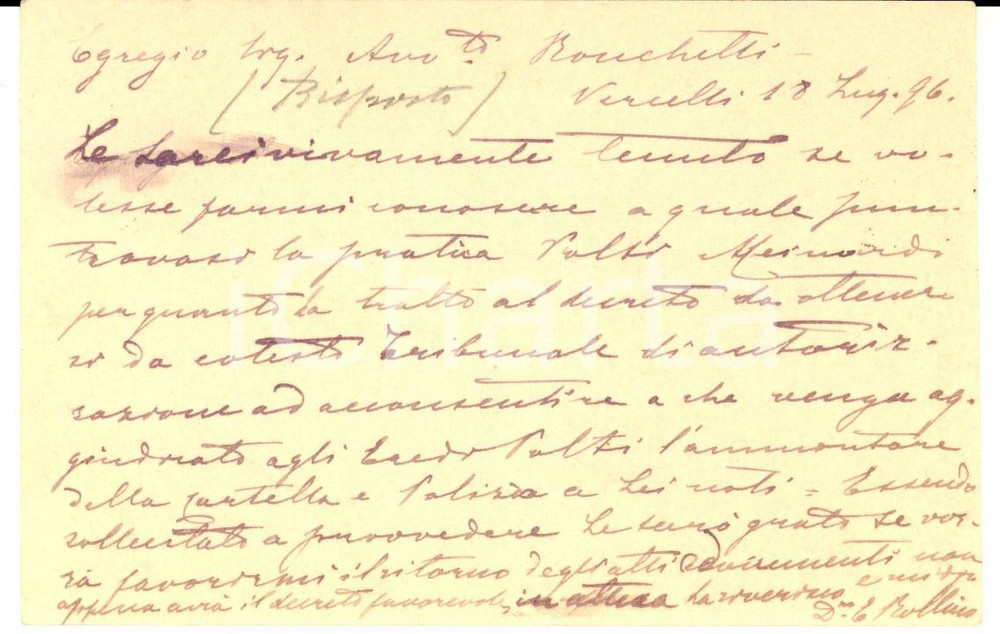 Egregio Sig. Avv.ti Ronchetti -
(Risposto) Vercelli 18 Lug. 96.
Le sarei vivamente tenuto se vo-
lesse farmi conoscere a quale pun-
trovasi la pratica Poltri Meinardi
per quanto ha tratto al decreto da ottener
si da cotesto Tribunale di autoriz-
zazione ad acconsentire a che venga ag-
giudicato agli Eredi Poltri l'ammontare
della cartella e Polizza a Lei noti = Essendo
sollecitato a provvedere Le sarò grato se vor-
rà favorirmi il ritorno degli atti e documenti non
appena avrà il decreto favorevole in attesa La riverisco e mi dico
D.mo E Rollino
iCharta